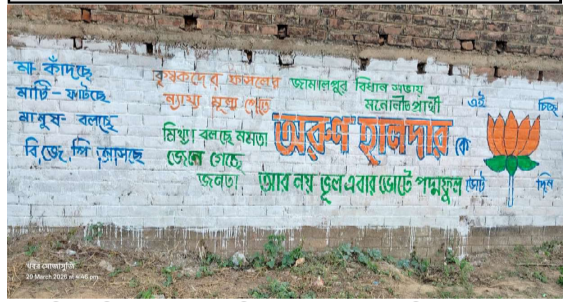 মা কাঁদছে
মাটি - ফাটছে
মানুষ- বলছে
বি,জে,পি আসছে
কৃষকদের ফসলের
ন্যায্য মূল্য পেতে
মিথ্যা বলছে মমতা
জেনে গেছে
জনতা
জামালপুর বিধান সভায়
মনোনীত প্রার্থী
অরুণ হালদার কে
আর নয় ভুল এবার ভোটে পদ্মফুল
এই চিহ্নে
ভোট দিন
খবর সোজাসুজি
29 March 2026 at 4:46 pm